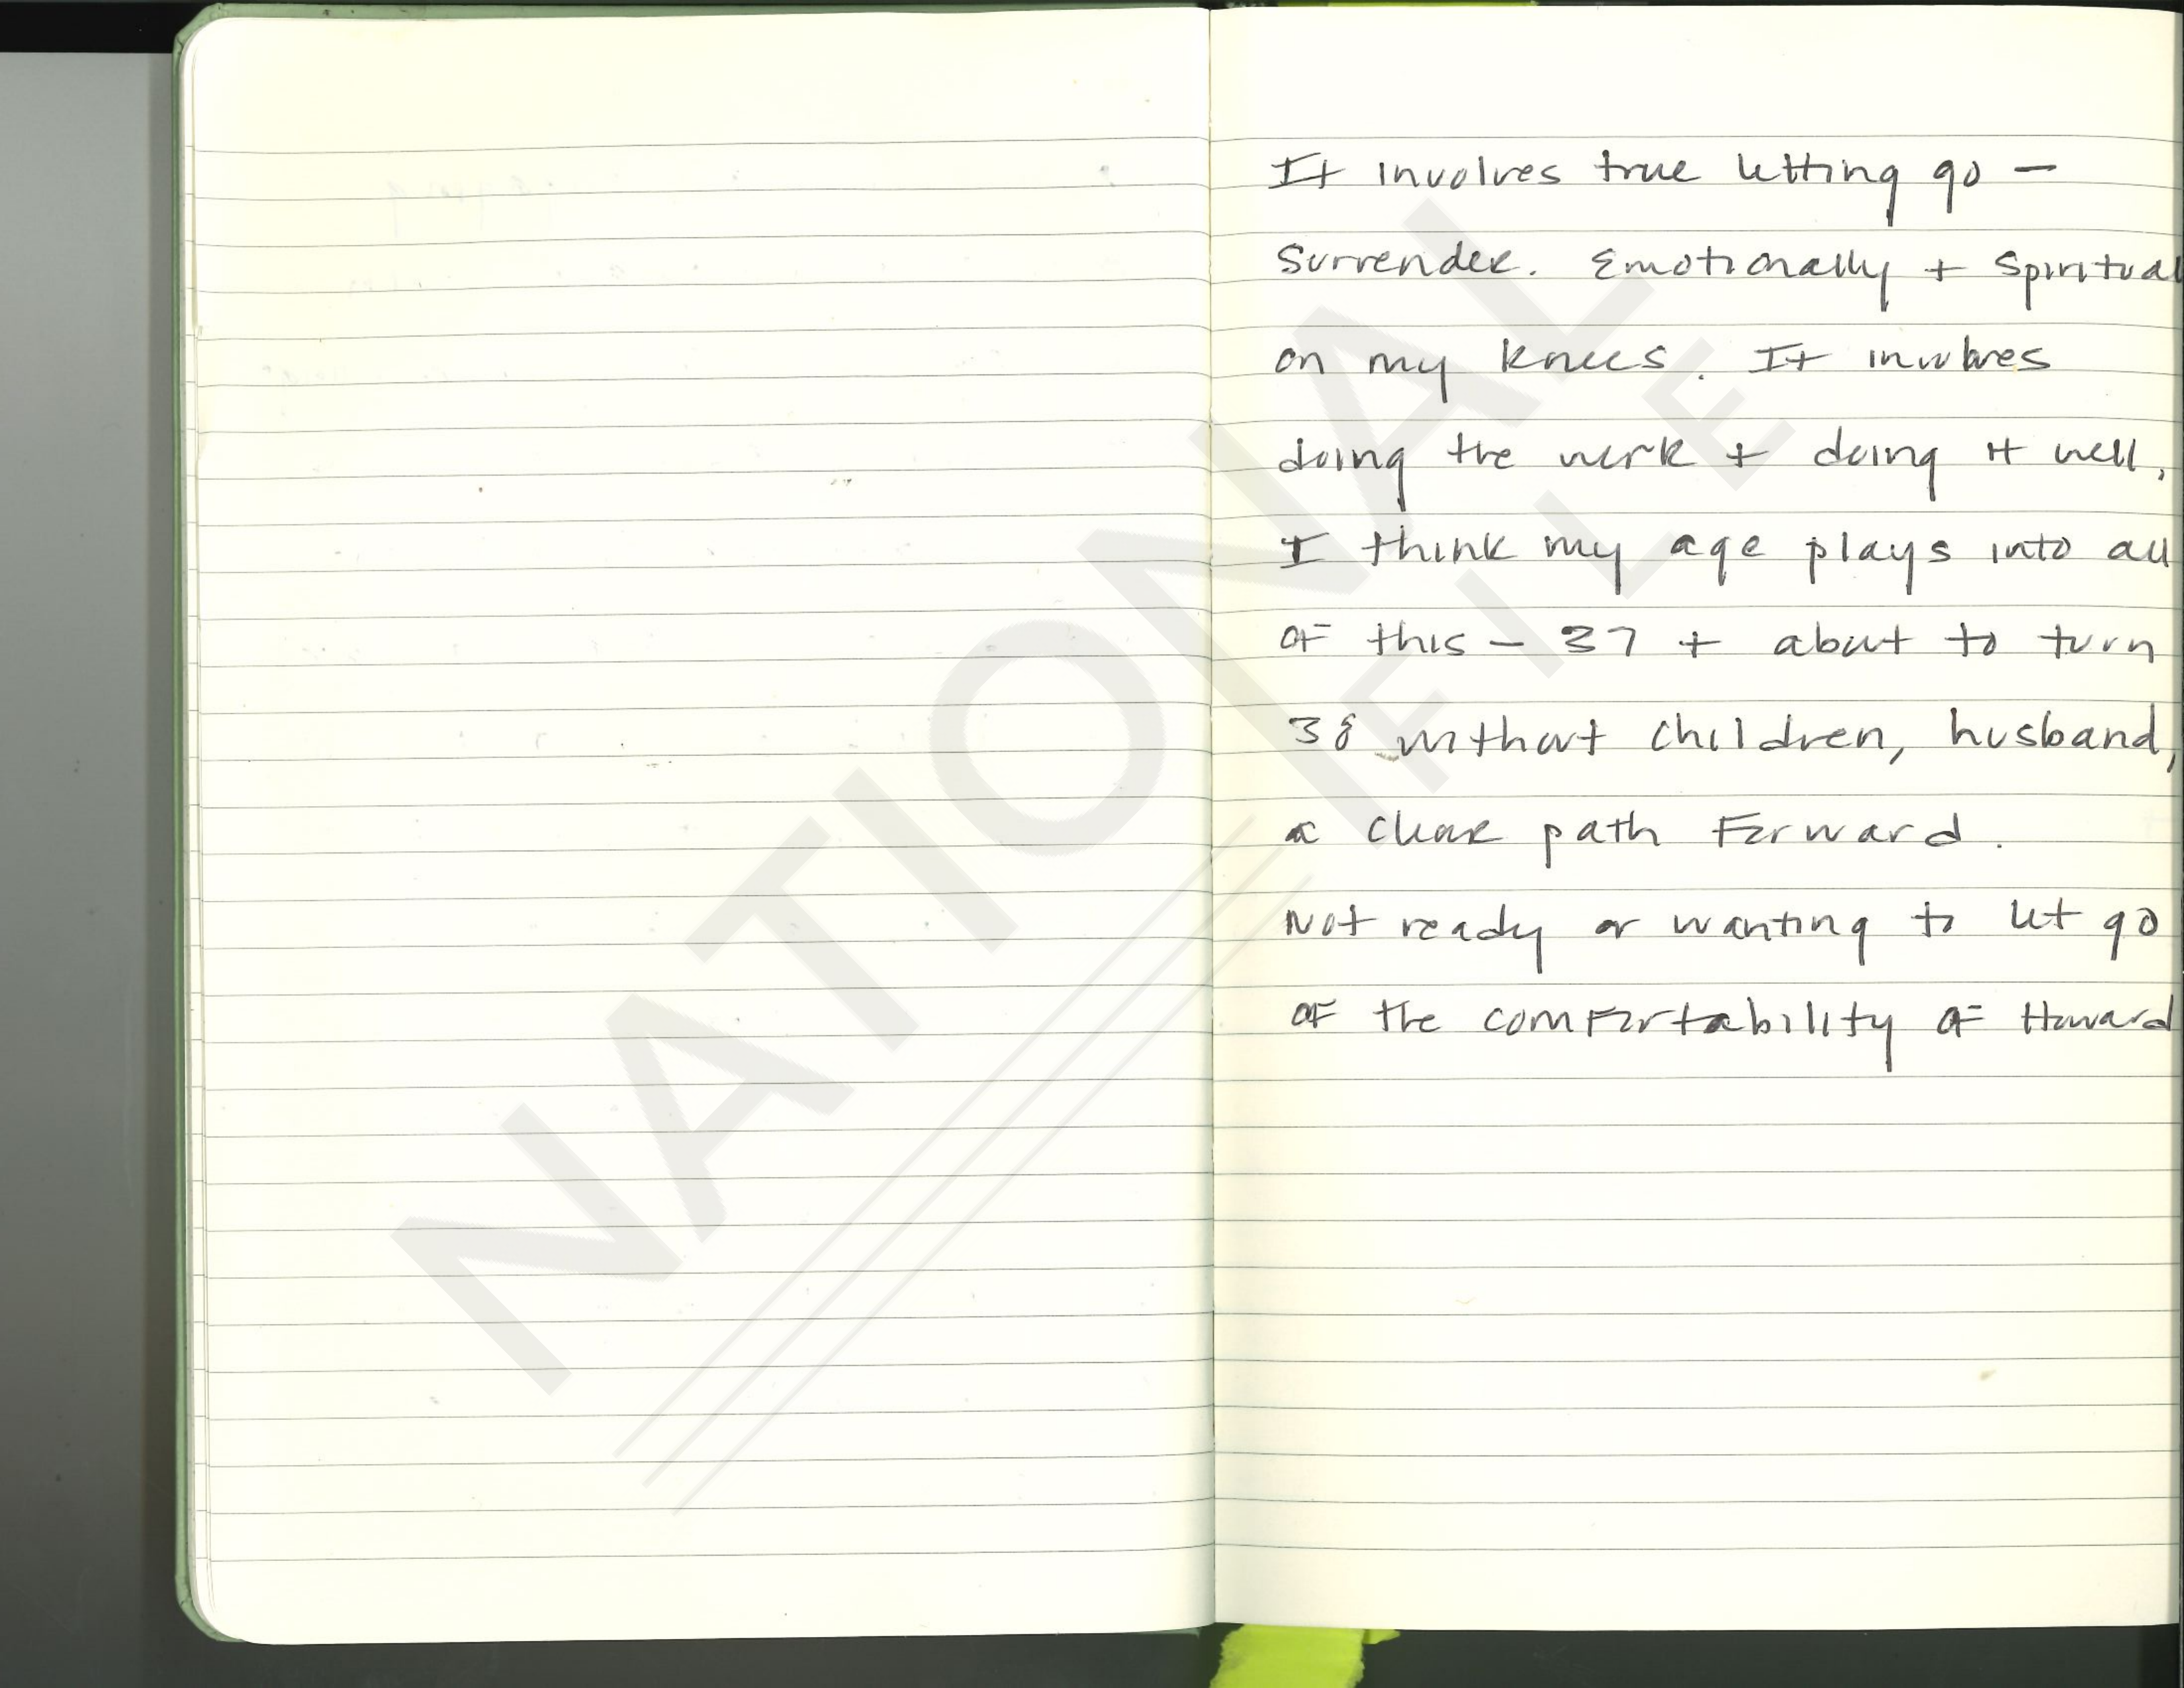 It involves true letting go —
Surrender. Emotionally + Spiritual
on my knees. It involves
doing the work + doing it well.
I think my age plays into all
of this — 37 + about to turn
38 without children, husband,
a clear path forward.
Not ready or wanting to let go
of the comfortability of Howard
NATIONAL
FILE